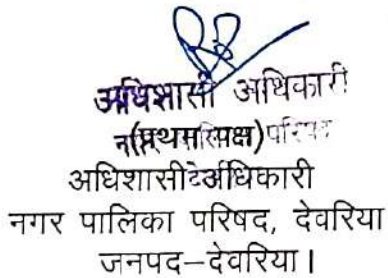 अधिशासी अधिकारी
(प्रथम पक्ष) परिषद
अधिशासी अधिकारी
नगर पालिका परिषद, देवरिया
जनपद–देवरिया।